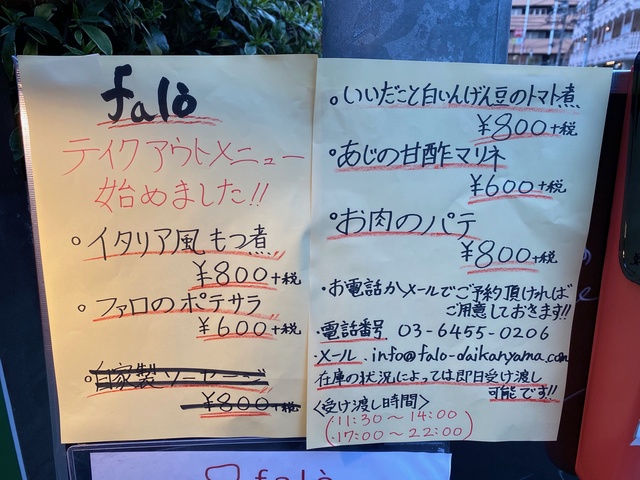 falò
テイクアウトメニュー
始めました!!
。イタリア風もつ煮
¥800+税
。ファロのポテサラ
¥600+税
。自家製ソーセージ
¥800+税
。いいだこと白いんげん豆のトマト煮
¥800+税
。あじの甘酢マリネ
¥600+税
。お肉のパテ
¥800+税
・お電話かメールでご予約頂ければ
ご用意しておきます!!
・電話番号 03-6455-0206
・メール . info@falo-daikanyama.com
在庫の状況によっては即日受け渡し
可能です!!
〈受け渡し時間〉
(11:30〜14:00
・17:00〜22:00)
falò